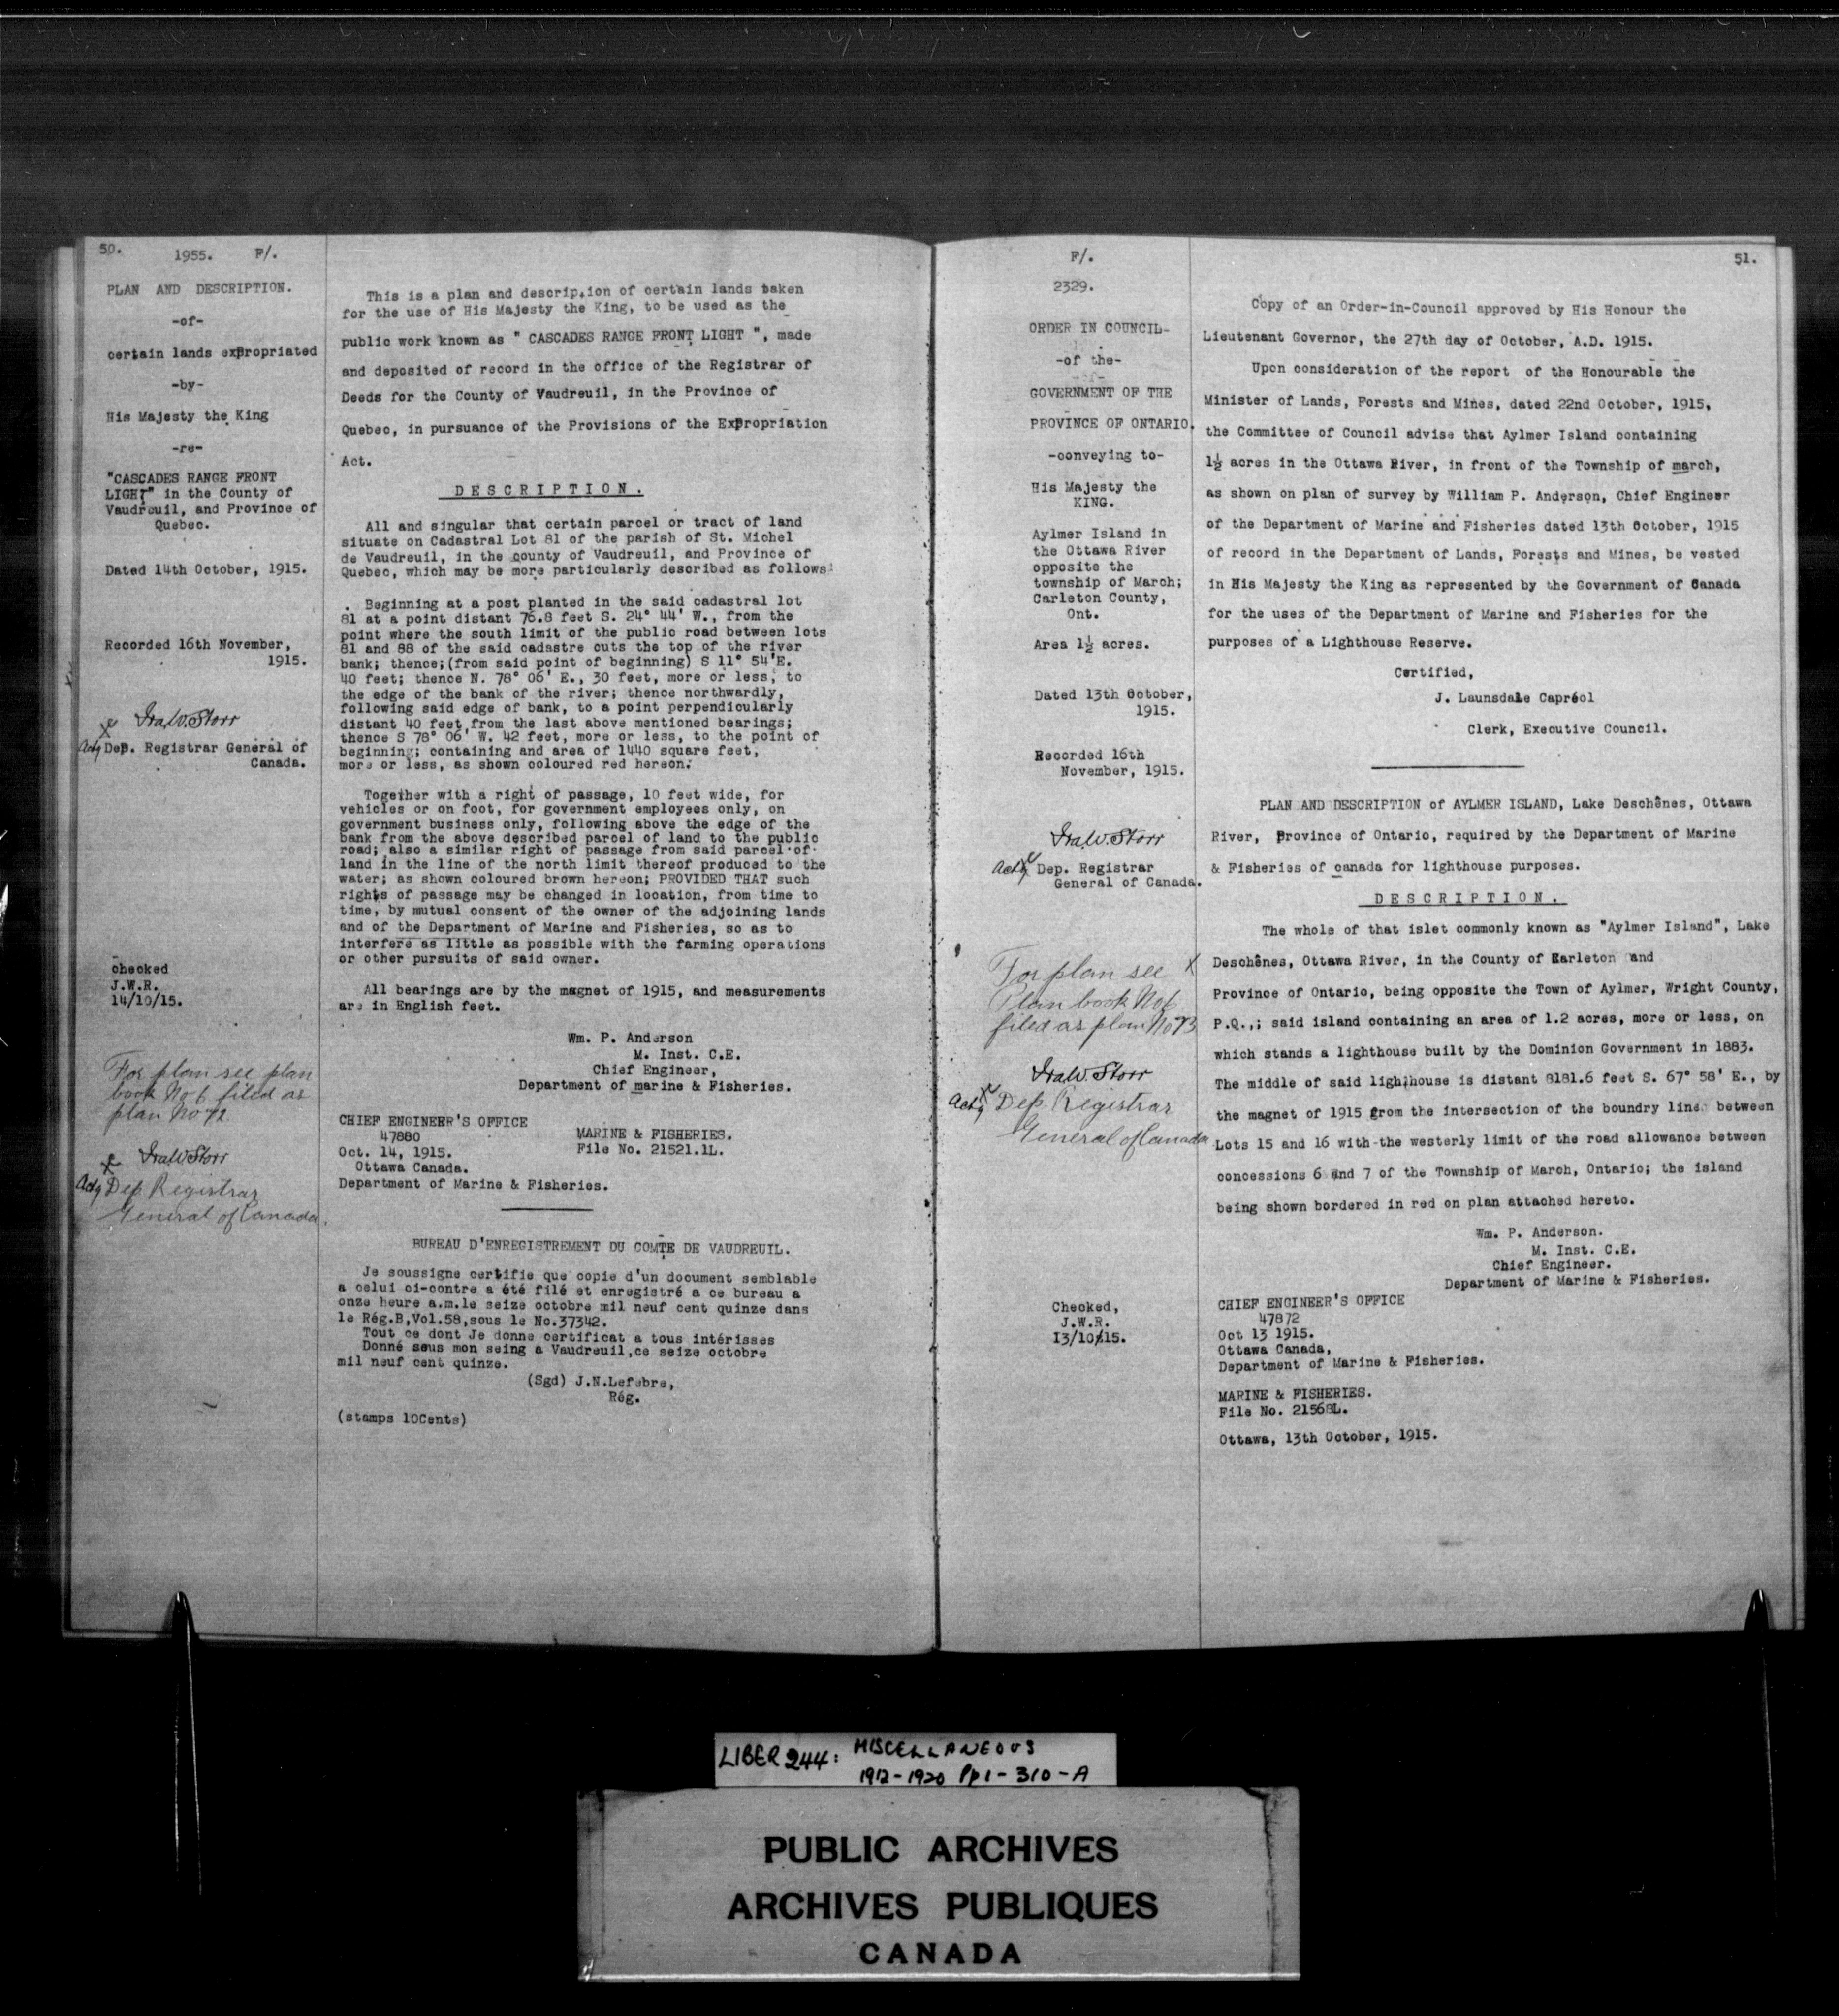 50.
1955. F/.
PLAN AND DESCRIPTION.
-of-
certain lands expropriated
-by-
His Majesty the King
-re-
"CASCADES RANGE FRONT
LIGHT" in the County of
Vaudreuil, and Province of
Quebec.
Dated 14th October, 1915.
Recorded 16th November,
1915.
Ira W. Storr
Actg Dep. Registrar General of
Canada.
checked
J.W.R.
14/10/15.
For plan see plan
book No 6 filed as
plan No 72.
Ira W Storr
Actg Dep Registrar
General of Canada.
This is a plan and description of certain lands taken
for the use of His Majesty the King, to be used as the
public work known as " CASCADES RANGE FRONT LIGHT ", made
and deposited of record in the office of the Registrar of
Deeds for the County of Vaudreuil, in the Province of
Quebec, in pursuance of the Provisions of the Expropriation
Act.
DESCRIPTION.
All and singular that certain parcel or tract of land
situate on Cadastral Lot 81 of the parish of St. Michel
de Vaudreuil, in the county of Vaudreuil, and Province of
Quebec, which may be more particularly described as follows:
Beginning at a post planted in the said cadastral lot
81 at a point distant 76.8 feet S. 24° 44' W., from the
point where the south limit of the public road between lots
81 and 88 of the said cadastre cuts the top of the river
bank; thence;(from said point of beginning) S 11° 54'E.
40 feet; thence N. 78° 06' E., 30 feet, more or less, to
the edge of the bank of the river; thence northwardly,
following said edge of bank, to a point perpendicularly
distant 40 feet from the last above mentioned bearings;
thence S 78° 06' W. 42 feet, more or less, to the point of
beginning; containing and area of 1440 square feet,
more or less, as shown coloured red hereon.
Together with a right of passage, 10 feet wide, for
vehicles or on foot, for government employees only, on
government business only, following above the edge of the
bank from the above described parcel of land to the public
road; also a similar right of passage from said parcel of
land in the line of the north limit thereof produced to the
water; as shown coloured brown hereon; PROVIDED THAT such
rights of passage may be changed in location, from time to
time, by mutual consent of the owner of the adjoining lands
and of the Department of Marine and Fisheries, so as to
interfere as little as possible with the farming operations
or other pursuits of said owner.
All bearings are by the magnet of 1915, and measurements
are in English feet.
Wm. P. Anderson
M. Inst. C.E.
Chief Engineer,
Department of marine & Fisheries.
CHIEF ENGINEER'S OFFICE
47880
Oct. 14, 1915.
Ottawa Canada.
Department of Marine & Fisheries.
MARINE & FISHERIES.
File No. 21521.1L.
BUREAU D'ENREGISTREMENT DU COMTE DE VAUDREUIL.
Je soussigne certifie que copie d'un document semblable
a celui ci-contre a été filé et enregistré a ce bureau a
onze heure a.m.le seize octobre mil neuf cent quinze dans
le Rég.B,Vol.58,sous le No.37342.
Tout ce dont Je donne certificat a tous intérisses
Donné sous mon seing a Vaudreuil,ce seize octobre
mil neuf cent quinze.
(Sgd) J.N.Lefebre,
Rég.
(stamps 10Cents)
F/.
2329.
ORDER IN COUNCIL-
-of the-
GOVERNMENT OF THE
PROVINCE OF ONTARIO.
-conveying to-
His Majesty the
KING.
Aylmer Island in
the Ottawa River
opposite the
township of March;
Carleton County,
Ont.
Area 1½ acres.
Dated 13th October,
1915.
Recorded 16th
November, 1915.
Ira W. Storr
Actg Dep. Registrar
General of Canada.
For plan see
Plan book No 6
filed as plan No 73
Ira W. Storr
Actg Dep Registrar
General of Canada
Checked,
J.W.R.
13/10/15.
51.
Copy of an Order-in-Council approved by His Honour the
Lieutenant Governor, the 27th day of October, A.D. 1915.
Upon consideration of the report of the Honourable the
Minister of Lands, Forests and Mines, dated 22nd October, 1915,
the Committee of Council advise that Aylmer Island containing
1½ acres in the Ottawa River, in front of the Township of march,
as shown on plan of survey by William P. Anderson, Chief Engineer
of the Department of Marine and Fisheries dated 13th October, 1915
of record in the Department of Lands, Forests and Mines, be vested
in His Majesty the King as represented by the Government of Canada
for the uses of the Department of Marine and Fisheries for the
purposes of a Lighthouse Reserve.
Certified,
J. Launsdale Capréol
Clerk, Executive Council.
PLAN AND DESCRIPTION of AYLMER ISLAND, Lake Deschênes, Ottawa
River, Province of Ontario, required by the Department of Marine
& Fisheries of canada for lighthouse purposes.
DESCRIPTION.
The whole of that islet commonly known as "Aylmer Island", Lake
Deschênes, Ottawa River, in the County of Carleton and
Province of Ontario, being opposite the Town of Aylmer, Wright County,
P.Q.,; said island containing an area of 1.2 acres, more or less, on
which stands a lighthouse built by the Dominion Government in 1883.
The middle of said lighthouse is distant 8181.6 feet S. 67° 58' E., by
the magnet of 1915 from the intersection of the boundry line between
Lots 15 and 16 with the westerly limit of the road allowance between
concessions 6 and 7 of the Township of March, Ontario; the island
being shown bordered in red on plan attached hereto.
Wm. P. Anderson.
M. Inst. C.E.
Chief Engineer.
Department of Marine & Fisheries.
CHIEF ENGINEER'S OFFICE
47872
Oct 13 1915.
Ottawa Canada,
Department of Marine & Fisheries.
MARINE & FISHERIES.
File No. 21568L.
Ottawa, 13th October, 1915.
LIBER 244: MISCELLANEOUS
1912-1920 Pp 1-310-A
PUBLIC ARCHIVES
ARCHIVES PUBLIQUES
CANADA